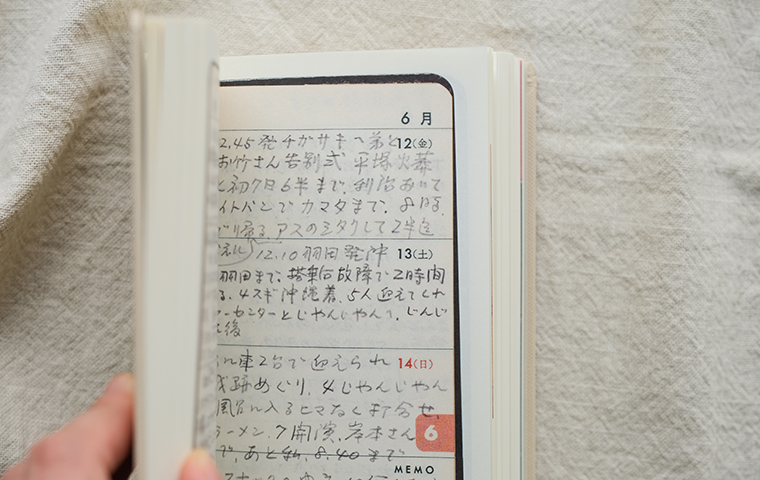 6月
2.45発チガサキへ弟と 12(金)
お竹さん告別式 平塚火葬
と初7日6半まで、
イトバンでカマタまで。8時
帰る。アスのシタクして2半迄
12.10羽田発沖 13(土)
羽田まで、搭乗後故障で2時間
る。4スギ沖縄着、5人迎えてくれ
ーセンターとじゃんじゃん、じんじ
後
ル車2台で迎えられ 14(日)
跡めぐり、4じゃんじゃん
風呂に入るヒマなく打合せ、
ラーメン、7開演、岸本さん
で、あと私、8.40まで
6
MEMO